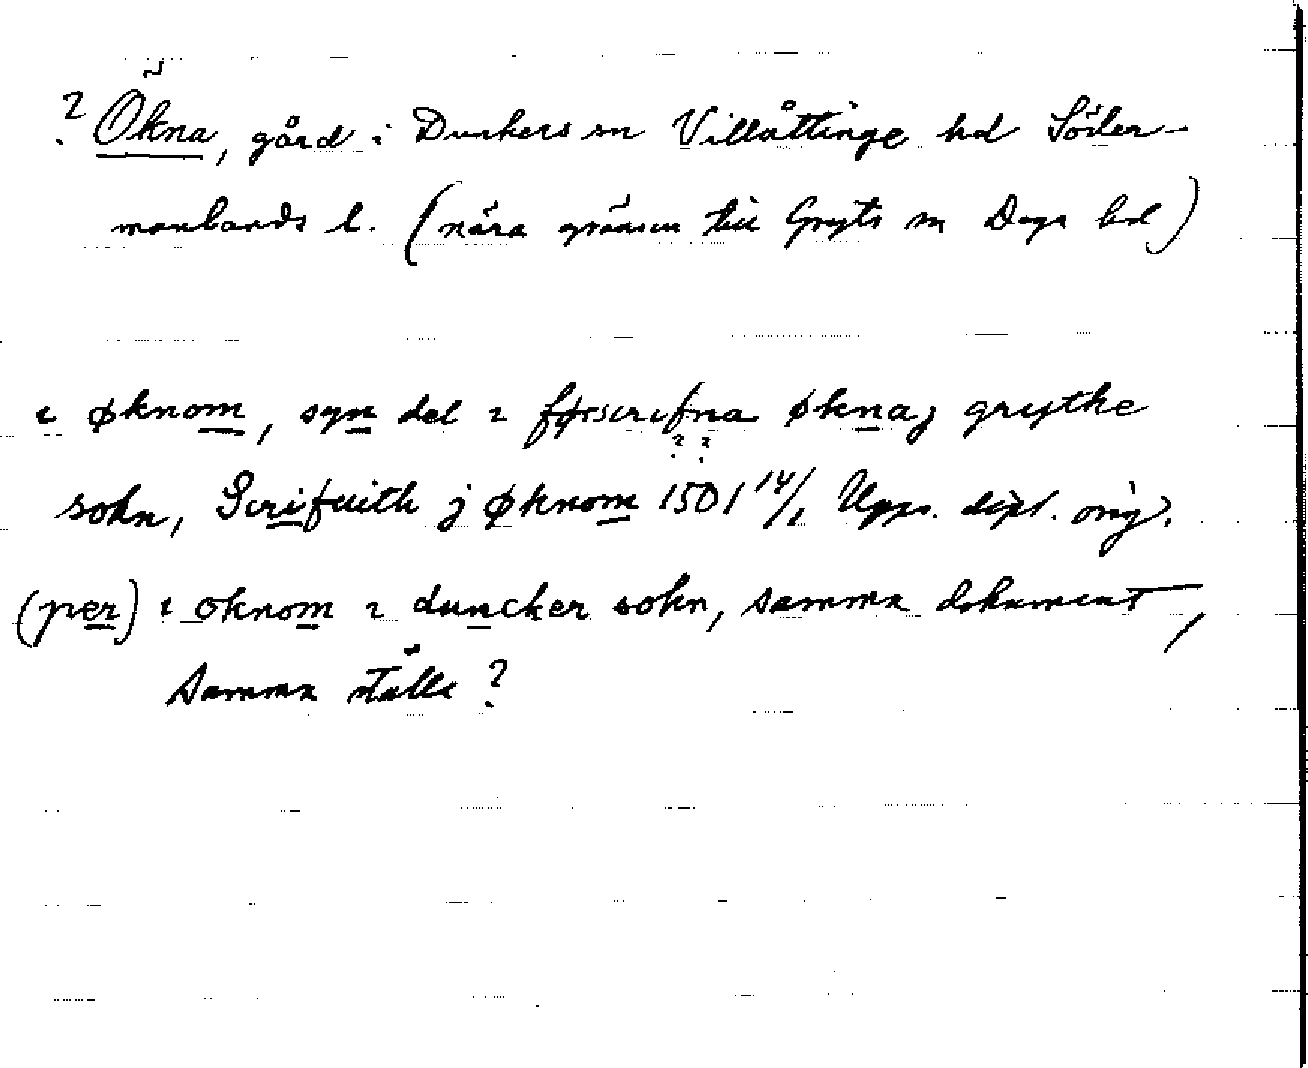 ? Ökna, gård i Dunkers sn Villåttinge hd Söder-
manlands l. (nära gränsen till Gryts sn Daga hd)
i øknom, syn del i førscrifna økna j grythe
? ?
sokn, Scrifuith j øknom 1501 14/1 Upps. dipl. orig.
(per) i oknom i duncker sokn, samma dokument,
samma ställe?